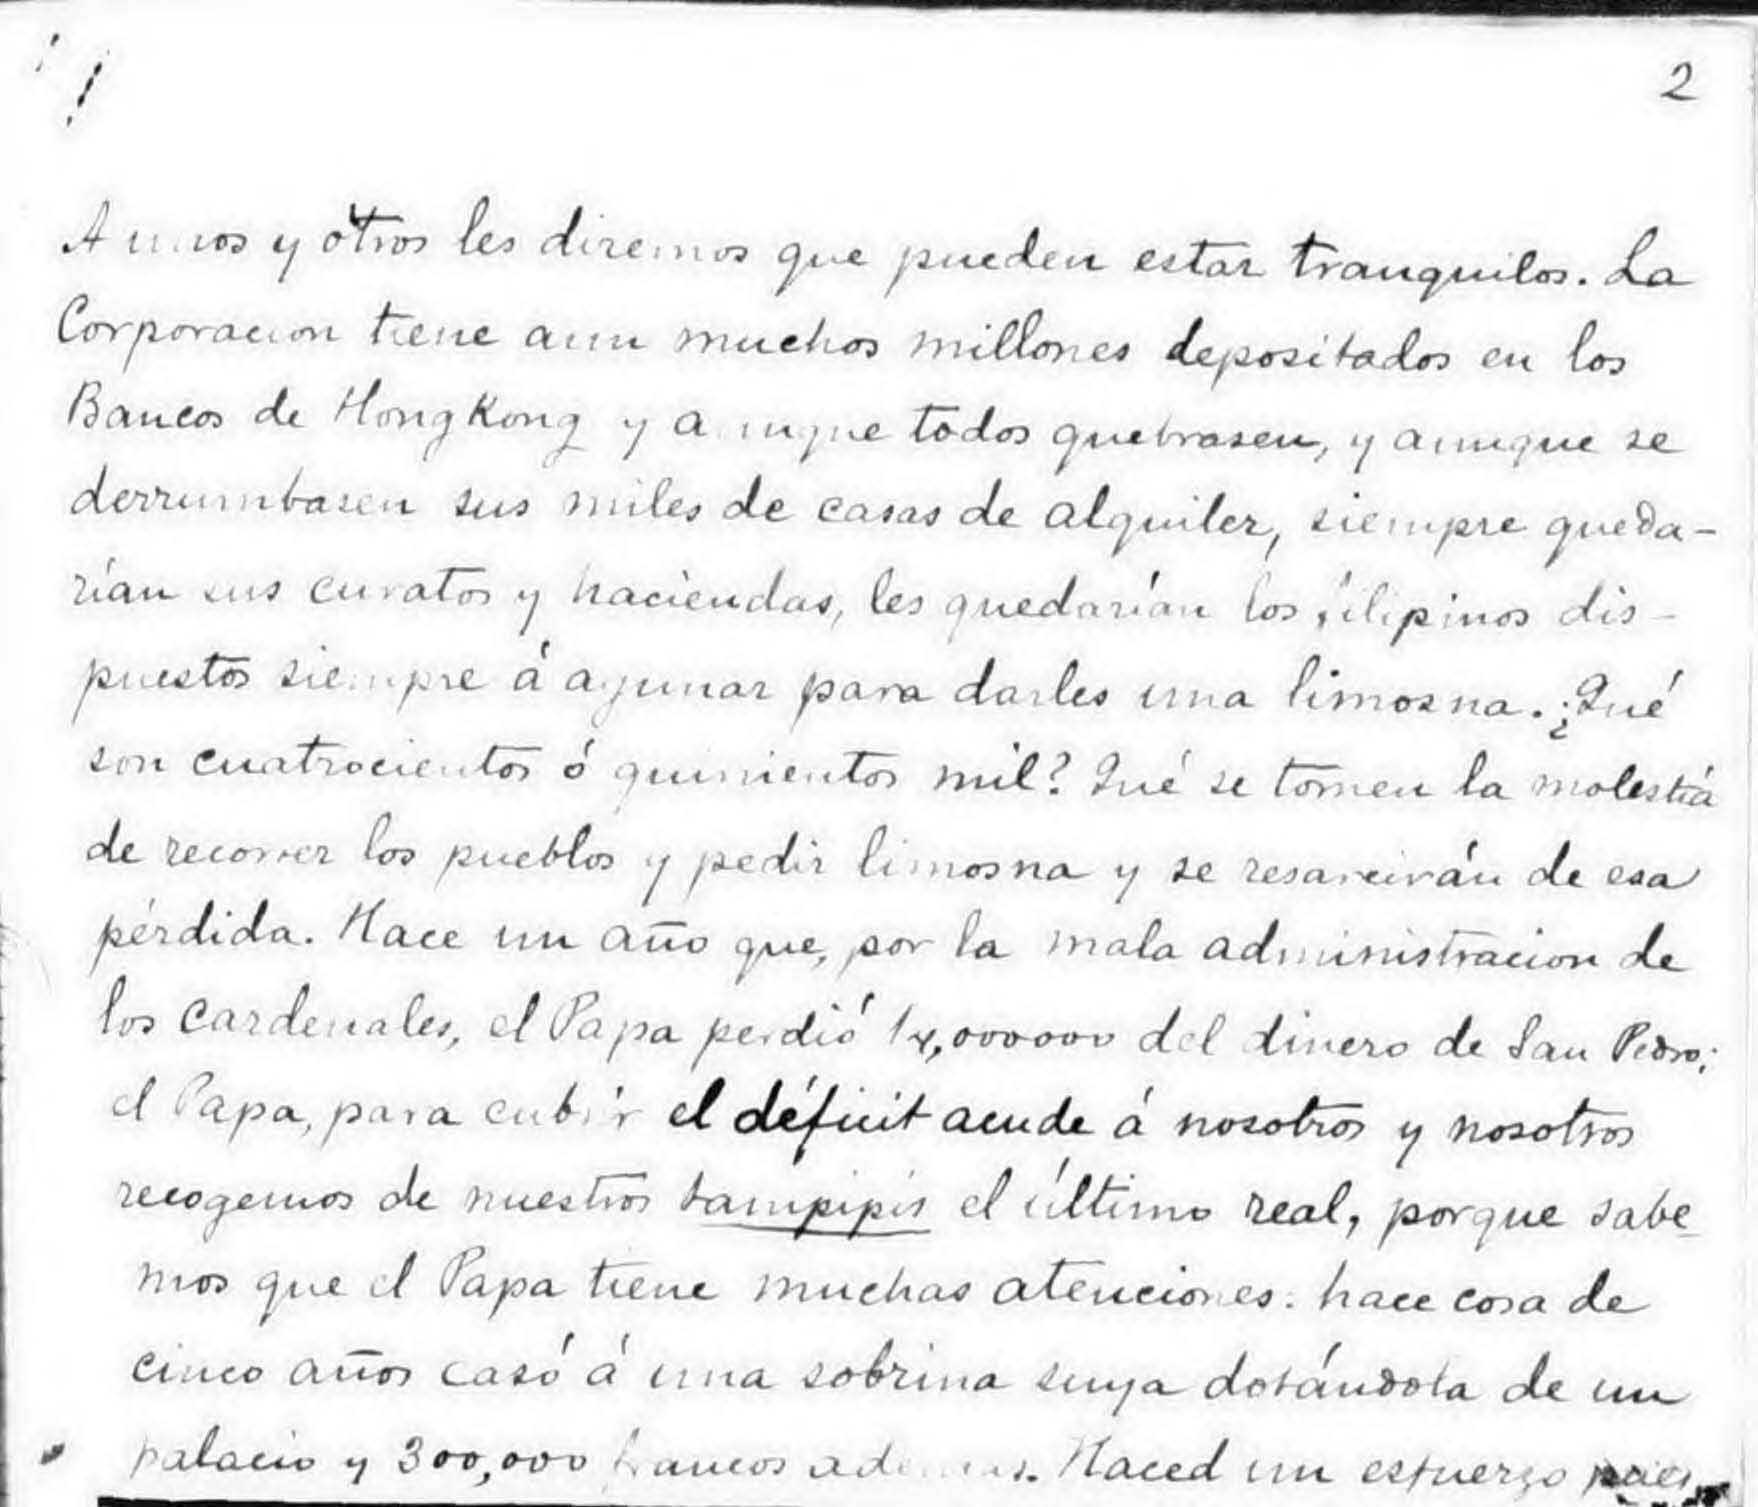 2
A unos y otros les diremos que pueden estar tranquilos. La
Corporacion tiene aun muchos millones depositados en los
Bancos de HongKong y aunque todos quebrasen, y aunque se
derrumbasen sus miles de casas de alquiler, siempre queda-
rían sus curatos y haciendas, les quedarían los filipinos dis-
puestos siempre á ayunar para darles una limosna. ¿Qué
son cuatrocientos ó quinientos mil? Qué se tomen la molestia
de recorrer los pueblos y pedir limosna y se resarcirán de esa
pérdida. Hace un año que, por la mala administracion de
los cardenales, el Papa perdió 14,000000 del dinero de San Pedro;
el Papa, para cubrir el déficit acude á nosotros y nosotros
recogemos de nuestros tampipis el último real, porque sabe-
mos que el Papa tiene muchas atenciones: hace cosa de
cinco años casó á una sobrina suya dotándola de un
palacio y 300,000 francos ademas. Haced un esfuerzo pues,